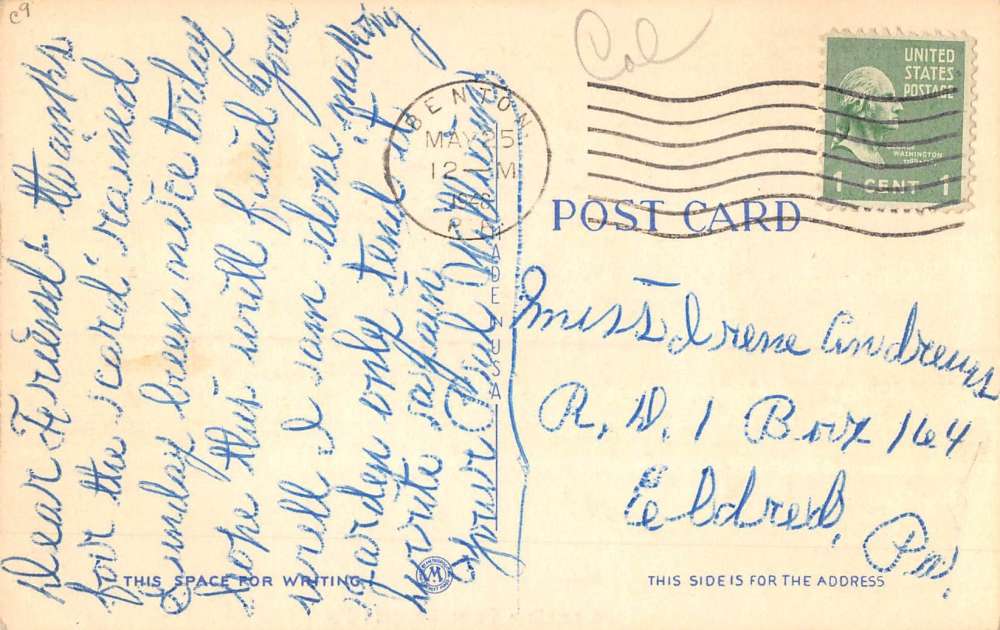 c9
Col
BENTON
MAY 25
12 M
UNITED
STATES
POSTAGE
WASHINGTON
1 CENT 1
POST CARD
Dear Friend thanks
for the card rained
Sunday been nice today
hope this will find you
well I am done making
garden only tend it
write again
your Pal
MADE IN USA
Miss Irene Andrews
R. D. 1 Box 164
Eldred,
Pa.
THIS SPACE FOR WRITING
M
THIS SIDE IS FOR THE ADDRESS